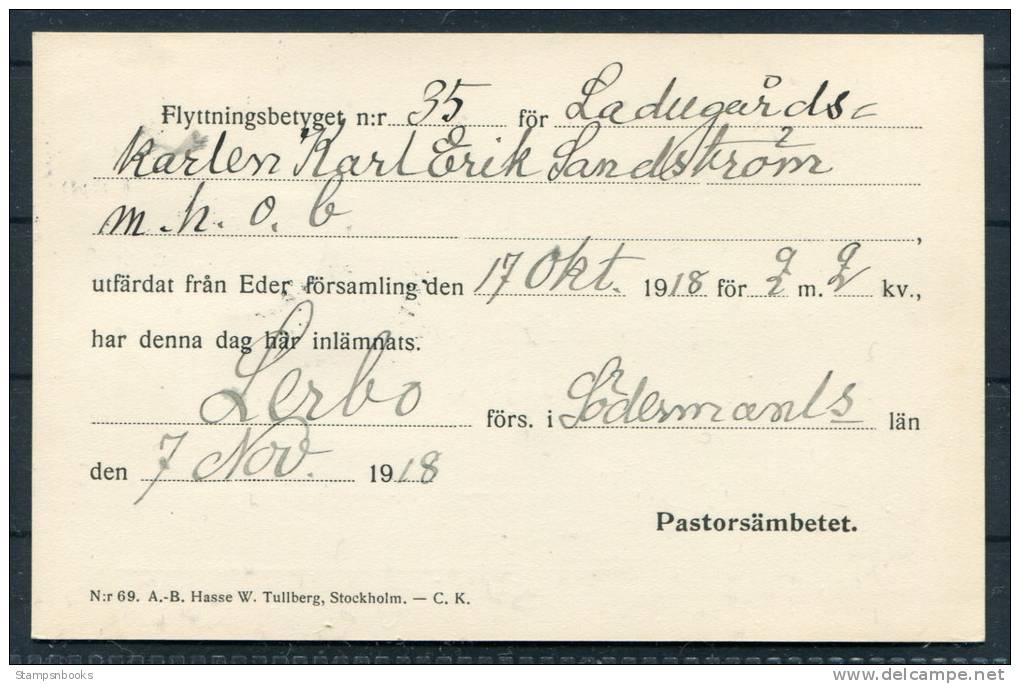 Flyttningsbetyget n:r 35 för Ladugårds-
karlen Karl Erik Sandström
m. h. o. b.
utfärdat från Eder församling den 17 Okt. 1918 för 2 m. 2 kv.,
har denna dag här inlämnats.
Lerbo förs. i Södermanl:s län
den 7 Nov. 1918
Pastorsämbetet.
N:r 69. A.-B. Hasse W. Tullberg, Stockholm. — C. K.
Stampsnbooks
© delcampe.net